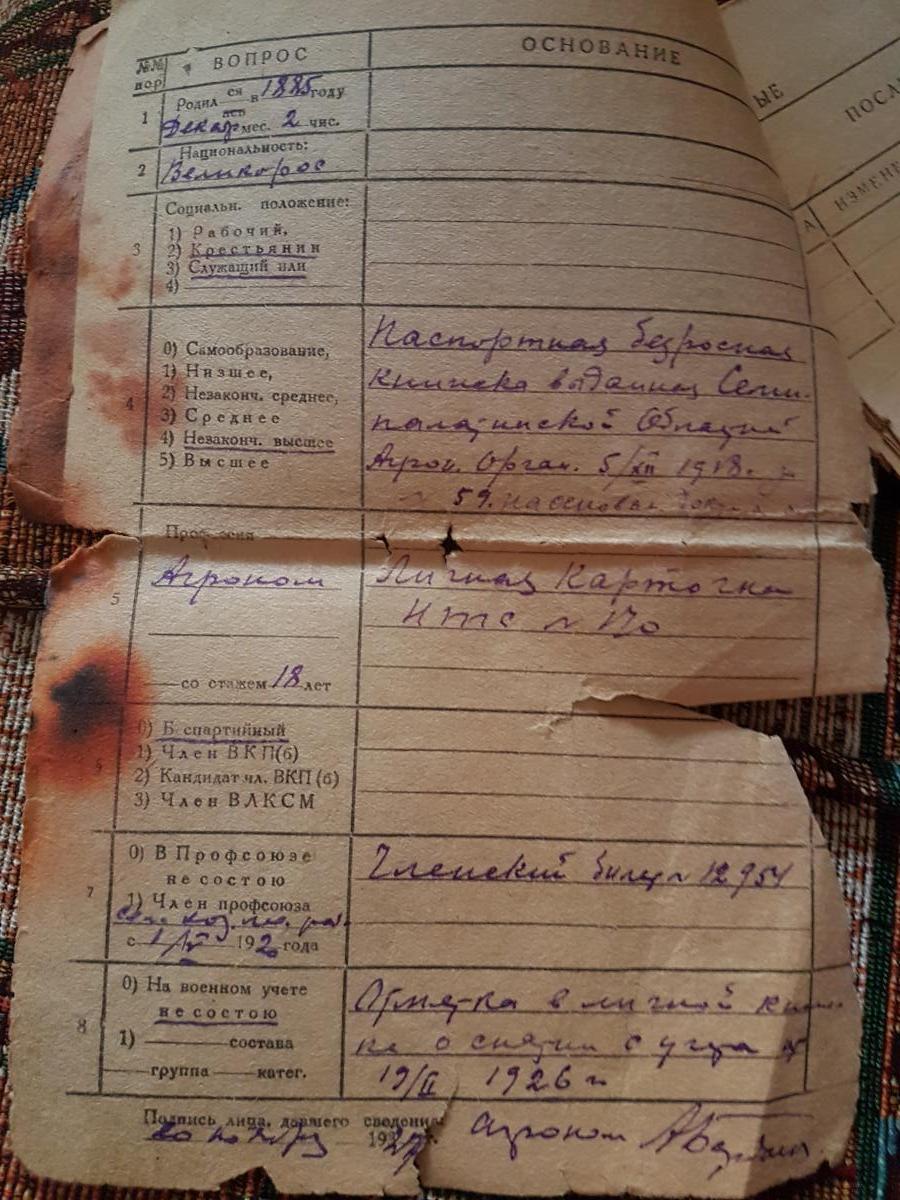 №№ пор.
ВОПРОС
ОСНОВАНИЕ
1
Родил ся в 1885 году
ась
Декаб мес. 2 чис.
2
Национальность:
Великорос
3
Социальн. положение:
1) Рабочий,
2) Крестьянин
3) Служащий или
4)
4
0) Самообразование,
1) Низшее,
2) Незаконч. среднее,
3) Среднее
4) Незаконч. высшее
5) Высшее
Паспортная
книжка выданная Семи-
палатинской
Агрон. Орган. 5/XII 1918.
59.
5
Профессия
Агроном
со стажем 18 лет
Личная Карточка
№ 170
6
0) Б спартийный
1) Член ВКП(б)
2) Кандидат чл. ВКП(б)
3) Член ВЛКСМ
7
0) В Профсоюзе
не состою
1) Член профсоюза
с 192 года
Членский билет № 12954
8
0) На военном учете
не состою
1) состава
группа катег.
Отметка в личной книж-
ке о снятии с учета
19/II 1926 г
Подпись лица, давшего сведения
192 г.
агроном
ЫЕ
ПОСЛ
А
ИЗМЕНЕ